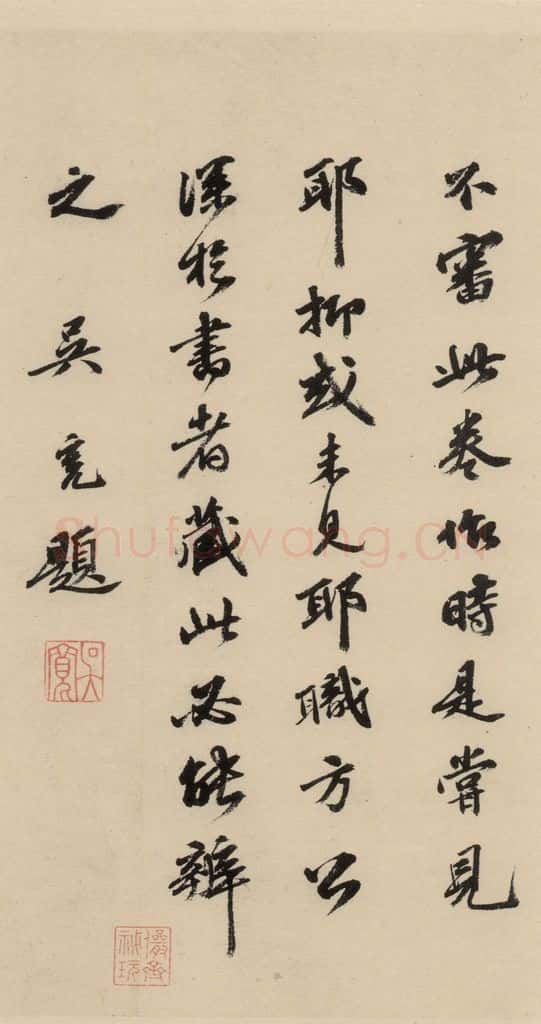 不審此卷作時是嘗見
耶抑或未見耶職方公
深於書者藏此必能辨
之 吳寬題
吳寬
shufawang.cn